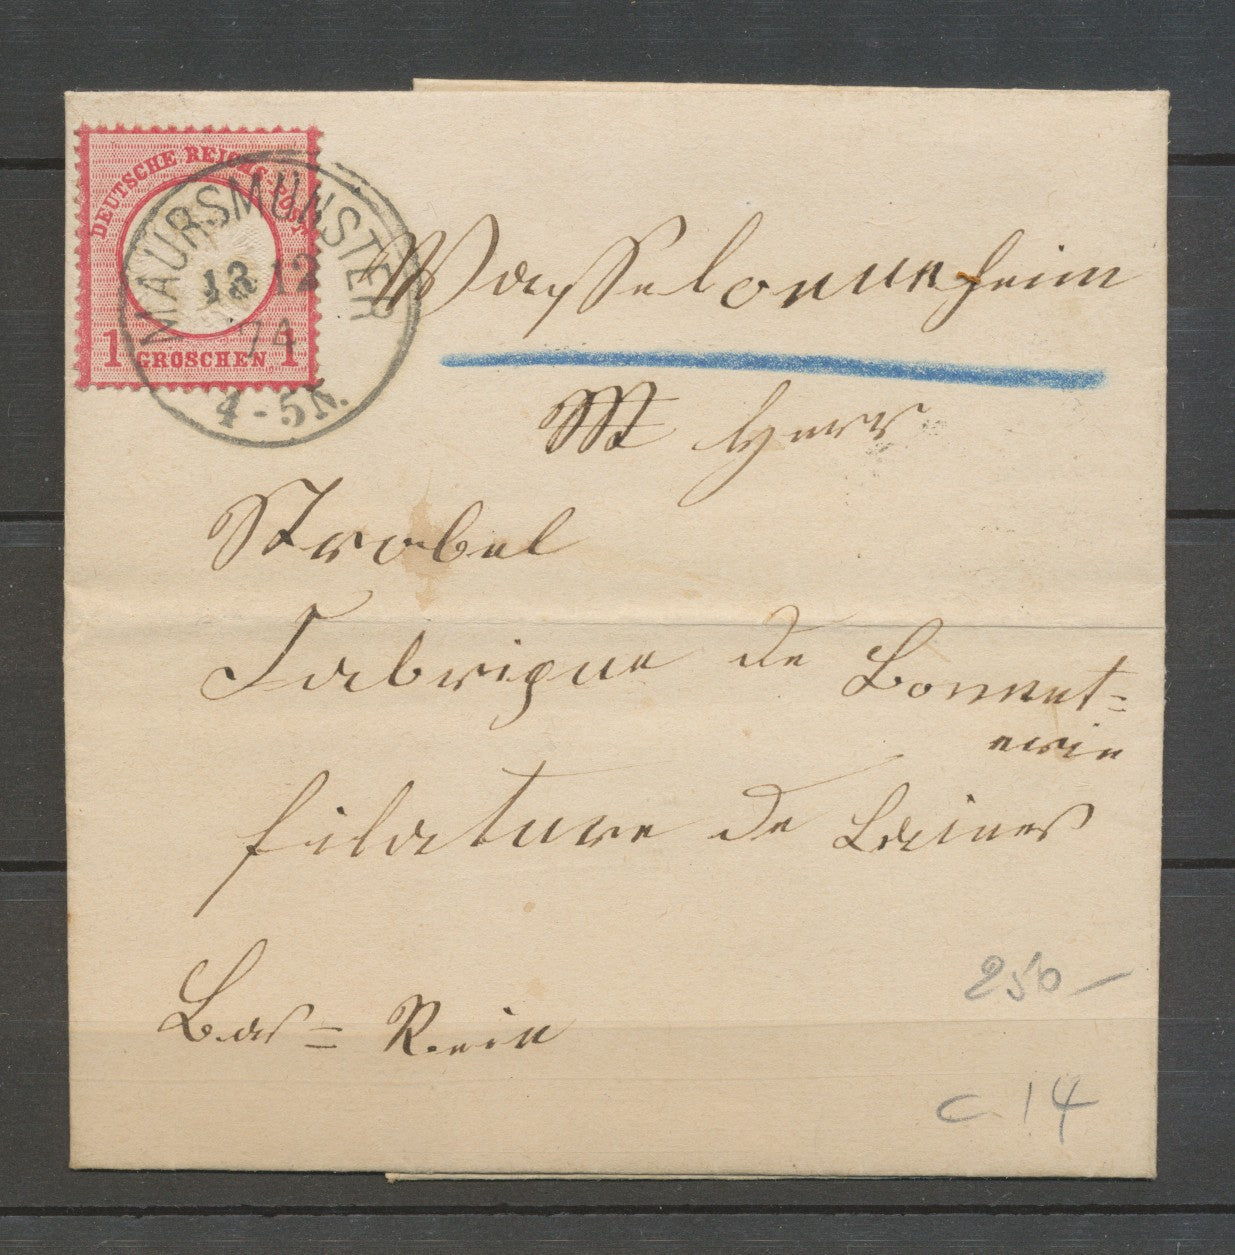 DEUTSCHE REICHS-POST
1 GROSCHEN 1
MAURSMÜNSTER
13 12
74
4-5N.
Wasselonneheim
Herr
Strobel
Fabrique de Bonnet=
erie
filature de Laines
Bas= Rein
250-
C. 14